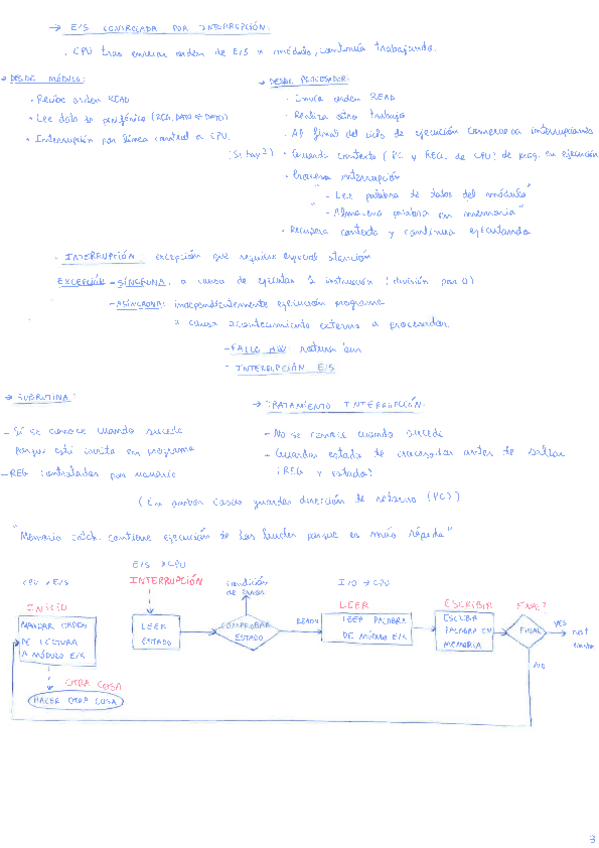 → E/S CONTROLADA POR INTERRUPCIÓN:
· CPU tras enviar orden de E/S a módulo, continúa trabajando.
→ DESDE MÓDULO:
· Recibe orden READ
· Lee dato de periférico (REG. DATO ← DATO)
· Interrupción por línea control a CPU.
→ DESDE PROCESADOR:
· Envía orden READ
· Realiza otro trabajo
· Al final del ciclo de ejecución comprueba interrupciones
¿Si hay?) · Guarda contexto (PC y REG. de CPU) de prog. en ejecución
· Procesa interrupción
"- Lee palabra de datos del módulo"
"- Almacena palabra en memoria"
· Recupera contexto y continua ejecutando
· INTERRUPCIÓN: excepción que requiere especial atención
EXCEPCIÓN - SÍNCRONA: a causa de ejecutar 1 instrucción (división por 0)
- ASÍNCRONA: independientemente ejecución programa
a causa acontecimiento externo a procesador.
- FALLO HW
- INTERRUPCIÓN E/S
→ SUBRUTINA:
- Sí se conoce cuando sucede
porque está en programa
- REG controlados por usuario
→ TRATAMIENTO INTERRUPCIÓN:
- No se conoce cuando sucede
- Guardar estado de procesador antes de saltar
¡REG y estado!
(En ambos casos guardar dirección de retorno (PC))
"Memoria cach. contiene ejecución de los bucles porque es más rápida"
CPU → E/S
INICIO
MANDAR ORDEN
DE LECTURA
A MÓDULO E/S
OTRA COSA
HACER OTRA COSA
E/S → CPU
INTERRUPCIÓN
LEER
ESTADO
condición
de error
COMPROBAR
ESTADO
READY
I/O → CPU
LEER
LEER PALABRA
DE MÓDULO E/S
ESCRIBIR
ESCRIBIR
PALABRA EN
MEMORIA
FINAL?
FINAL
YES
NO
3